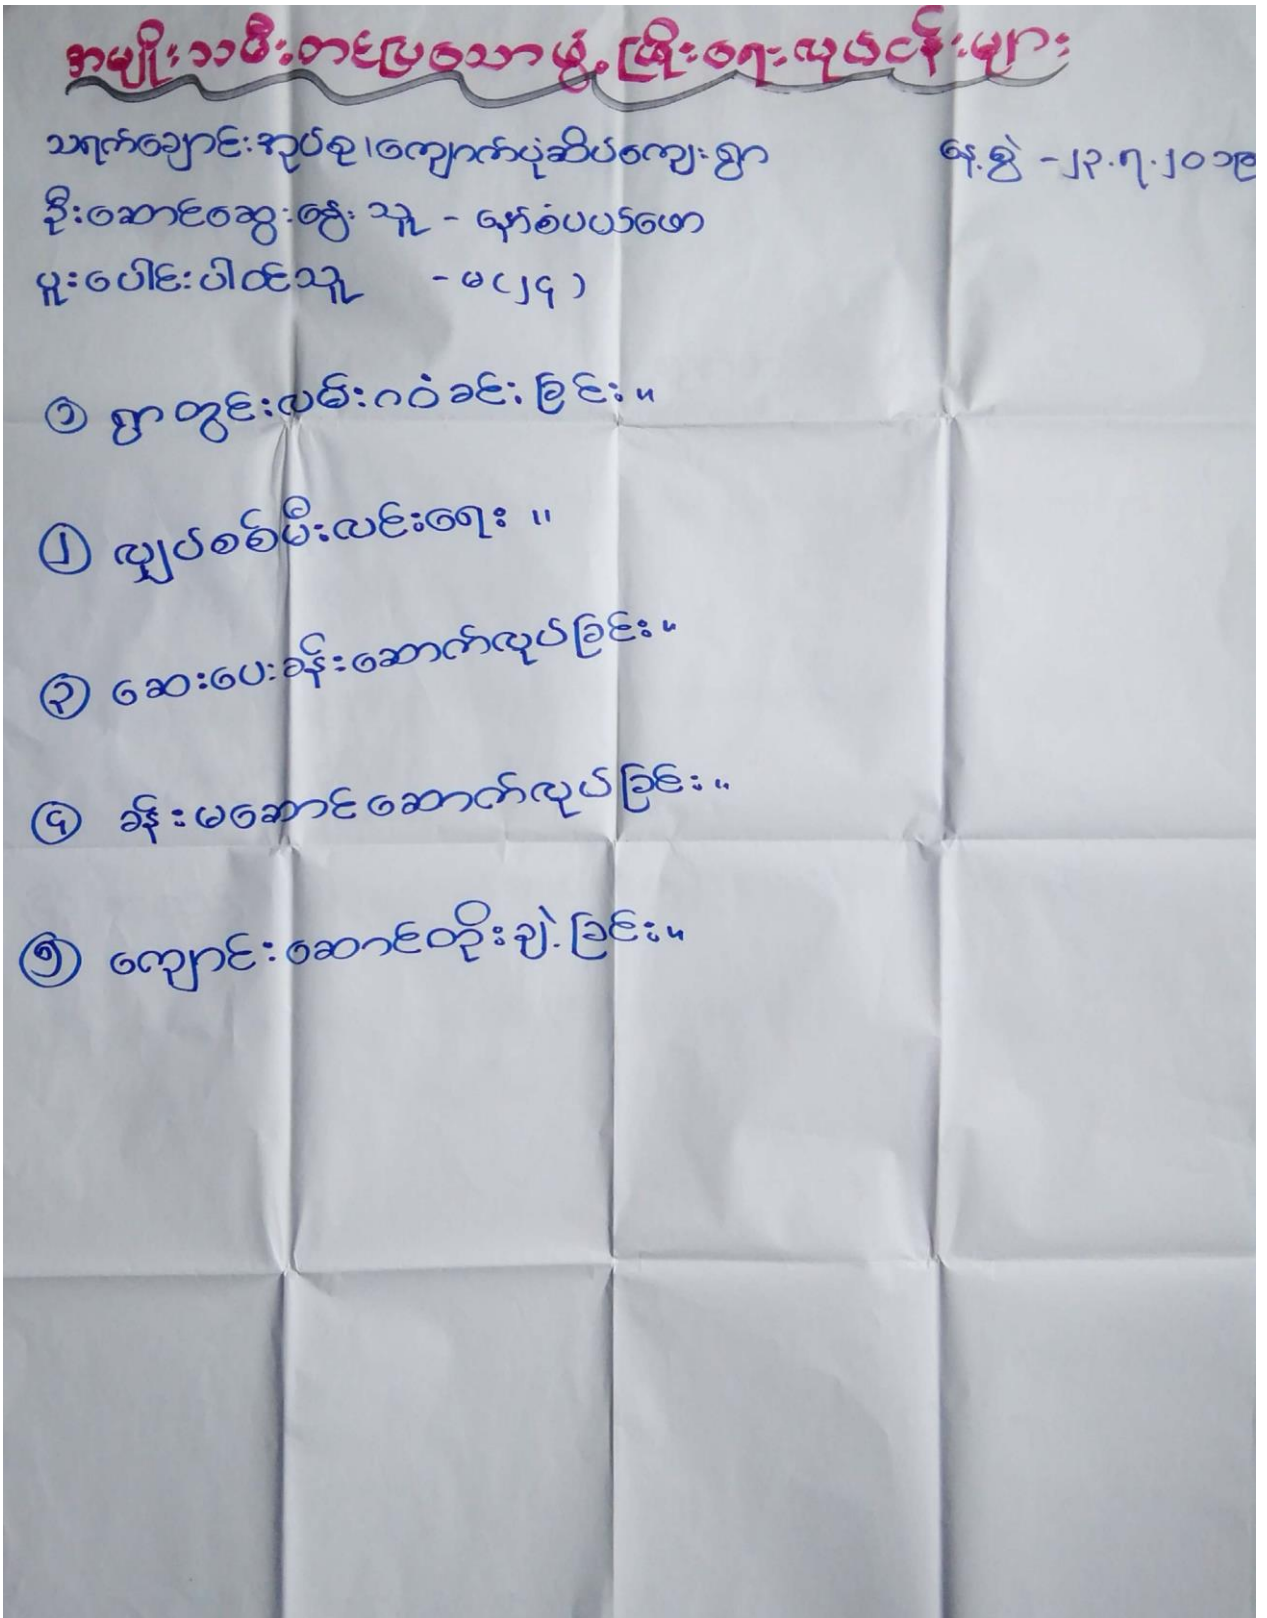 အမျိုးသမီးတင်ပြသောဖွံ့ဖြိုးရေးလုပ်ငန်းများ
သရက်ချောင်းအုပ်စု၊ကျောက်ပုံဆိပ်ကျေးရွာ နေ့စွဲ -၂၃.၇.၂၀၁၉
ဦးဆောင်ဆွေးနွေးသူ - နော်စံပယ်ဖော
ပူးပေါင်းပါဝင်သူ - မ(၂၄)
၁ ရွာတွင်းလမ်းဂဝံခင်းခြင်း။
၂ လျှပ်စစ်မီးလင်းရေး။
၃ ဆေးပေးခန်းဆောက်လုပ်ခြင်း။
၄ ခန်းမဆောင်ဆောက်လုပ်ခြင်း။
၅ ကျောင်းဆောင်တိုးချဲ့ခြင်း။